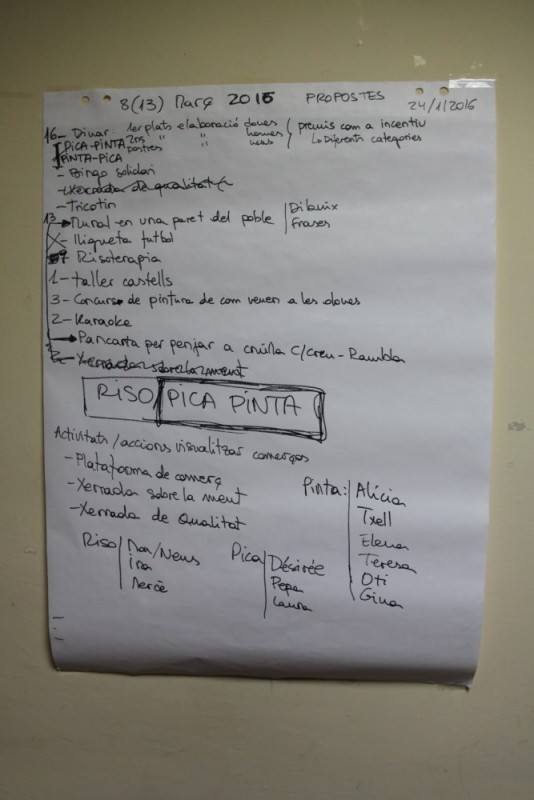 8(13) Març 2016 PROPOSTES 24/1/2016
16- Dinar: 1er plats elaboració dones premis com a incentiu
PICA-PINTA 2ns " " homes Diferents categories
PINTA-PICA postres " nens
- Bingo solidari
- Xerrada de qualitat
- Tricotin
13 Mural en una paret del poble Dibuix
Frases
- lligueta futbol
Risoterapia
1- taller castells
3- Concurs de pintura de com veuen a les dones
2- Karaoke
Pancarta per penjar a cruïlla C/Creu-Rambla
2- Xerrada sobre la ment
RISO/PICA PINTA
Activitats/accions visualitzar comerços
- Plataforma de comerç
- Xerrada sobre la ment
- Xerrada de Qualitat
Riso Mar/Neus
Ina
Mercè
Pica Désirée
Pepa
Laura
Pinta: Alícia
Txell
Elena
Teresa
Oti
Gina